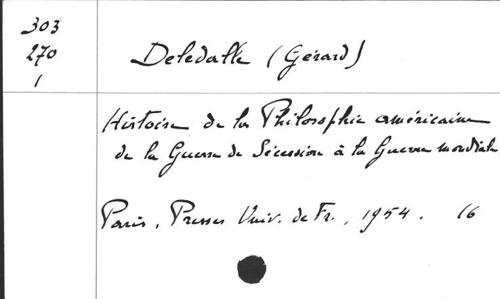 303
270
1
Deledalle (Gérard)
Histoire de la Philosophie américaine
de la Guerre de Sécession à la Guerre mondiale
Paris, Presses Univ. de Fr., 1954. 16